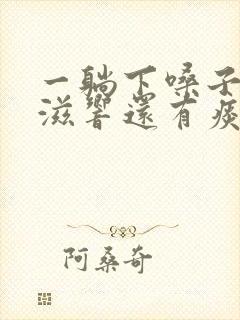 一躺下嗓子
滋响還有痰
阿桑奇